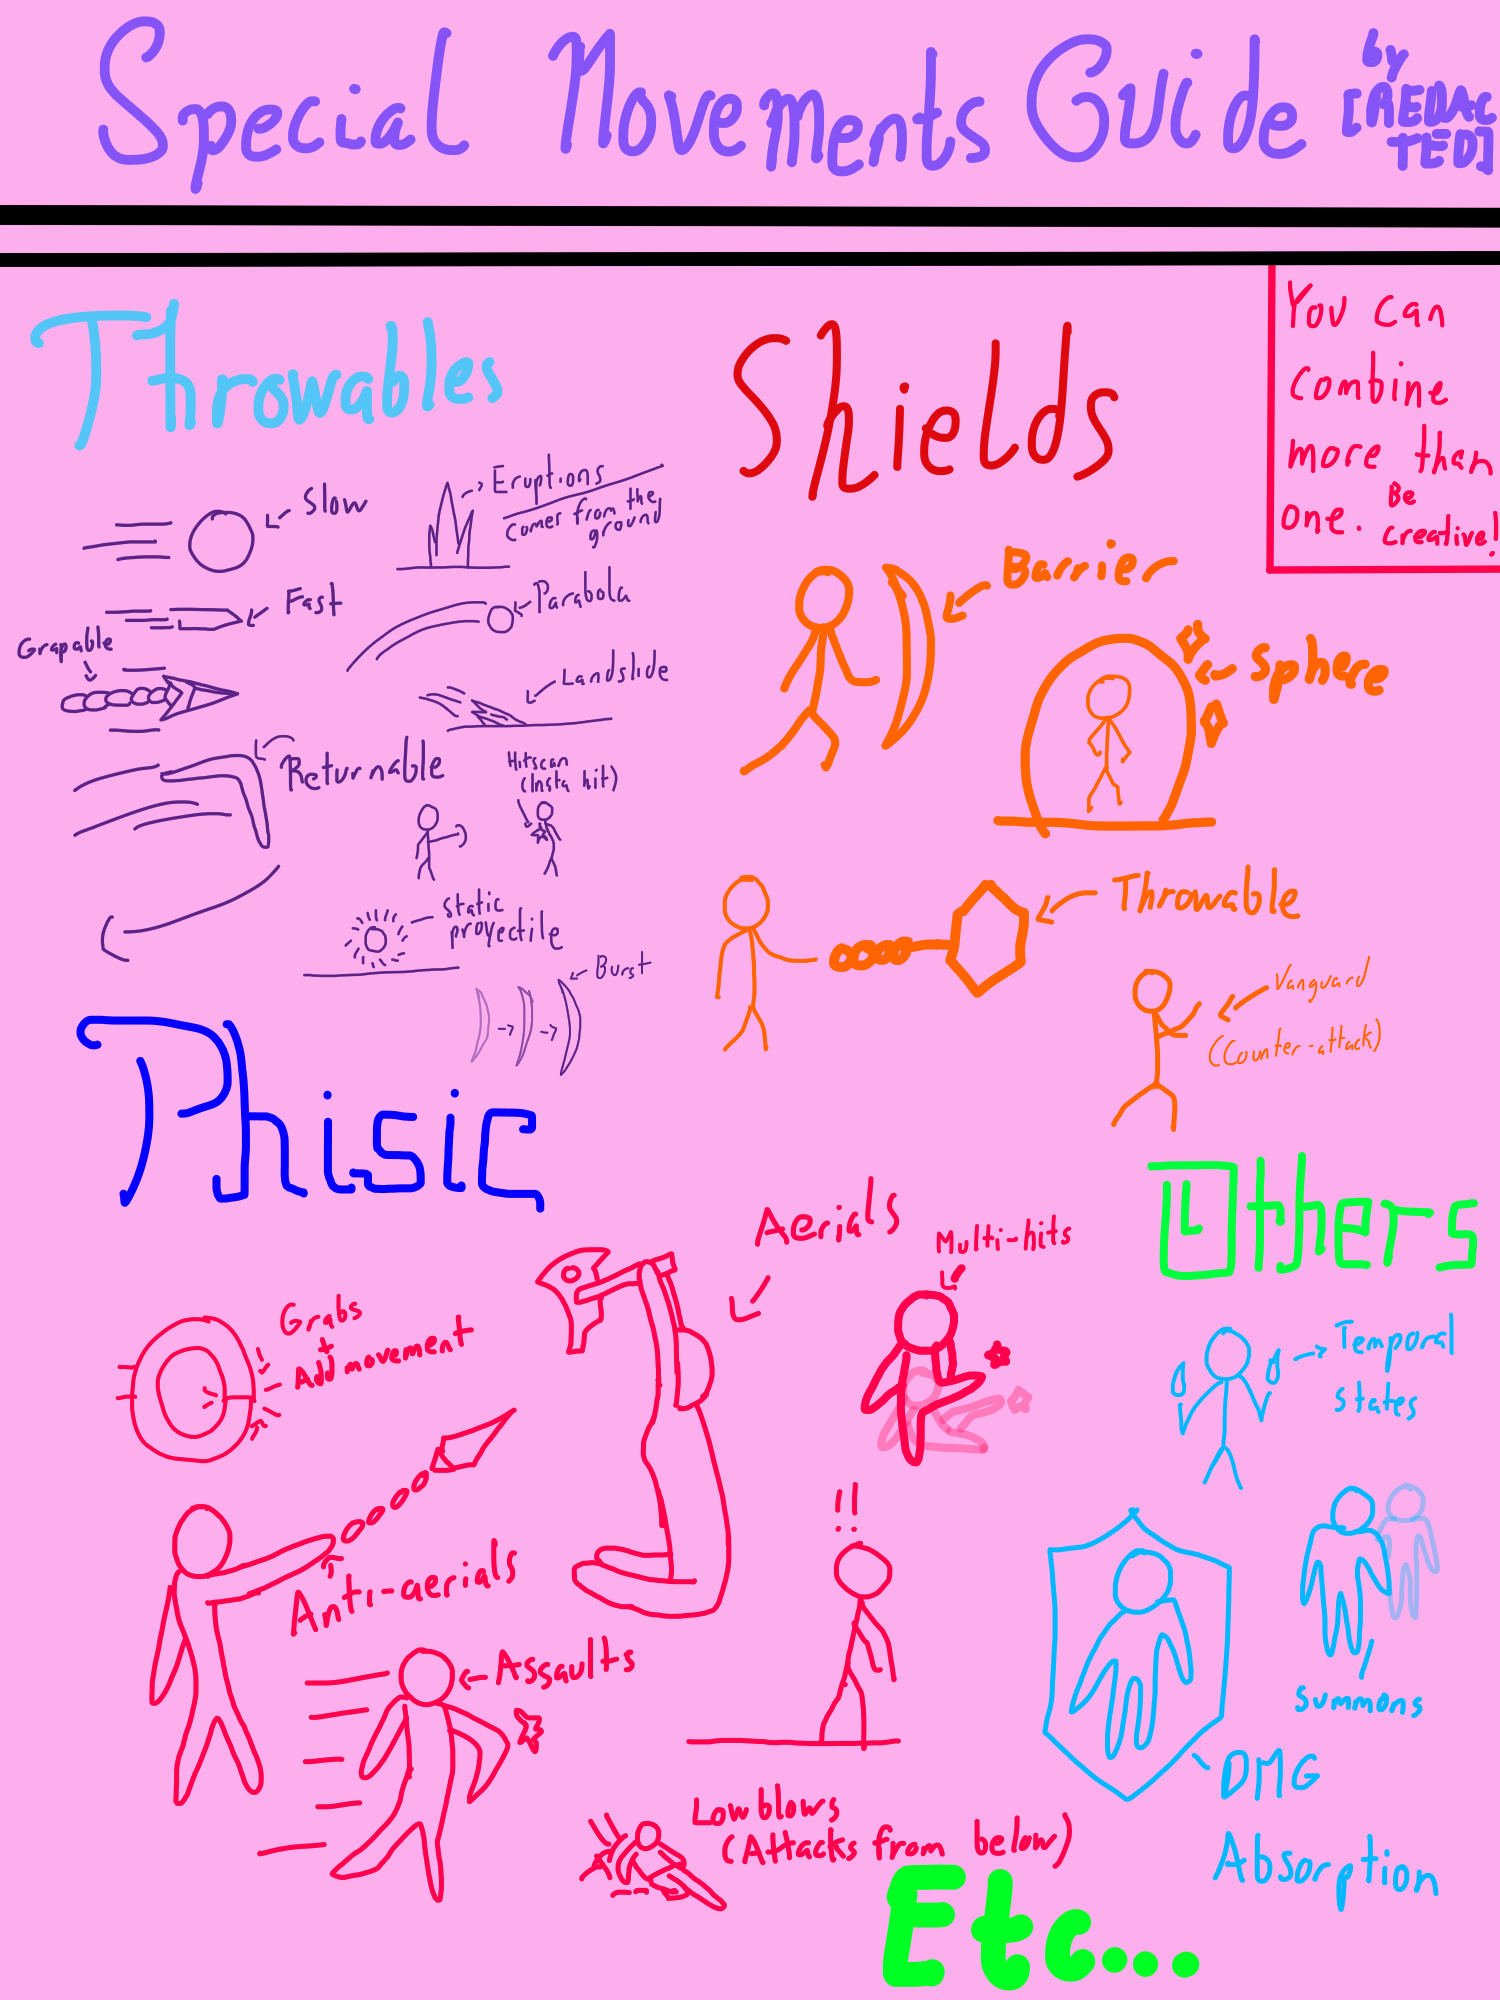 Special Movements Guide
by
[REDAC
TED]
You can
combine
more than
one. Be
creative!
Throwables
Slow
Eruptions
comes from the
ground
Fast
Parabola
Grapable
Landslide
Returnable
Hitscan
(Insta hit)
Static
proyectile
Burst
Shields
Barrier
Sphere
Throwable
Vanguard
(Counter-attack)
Phisic
Aerials
Multi-hits
Grabs
+
Add movement
Anti-aerials
Assaults
!!
Low blows
(Attacks from below)
Others
Temporal
states
summons
DMG
Absorption
Etc...